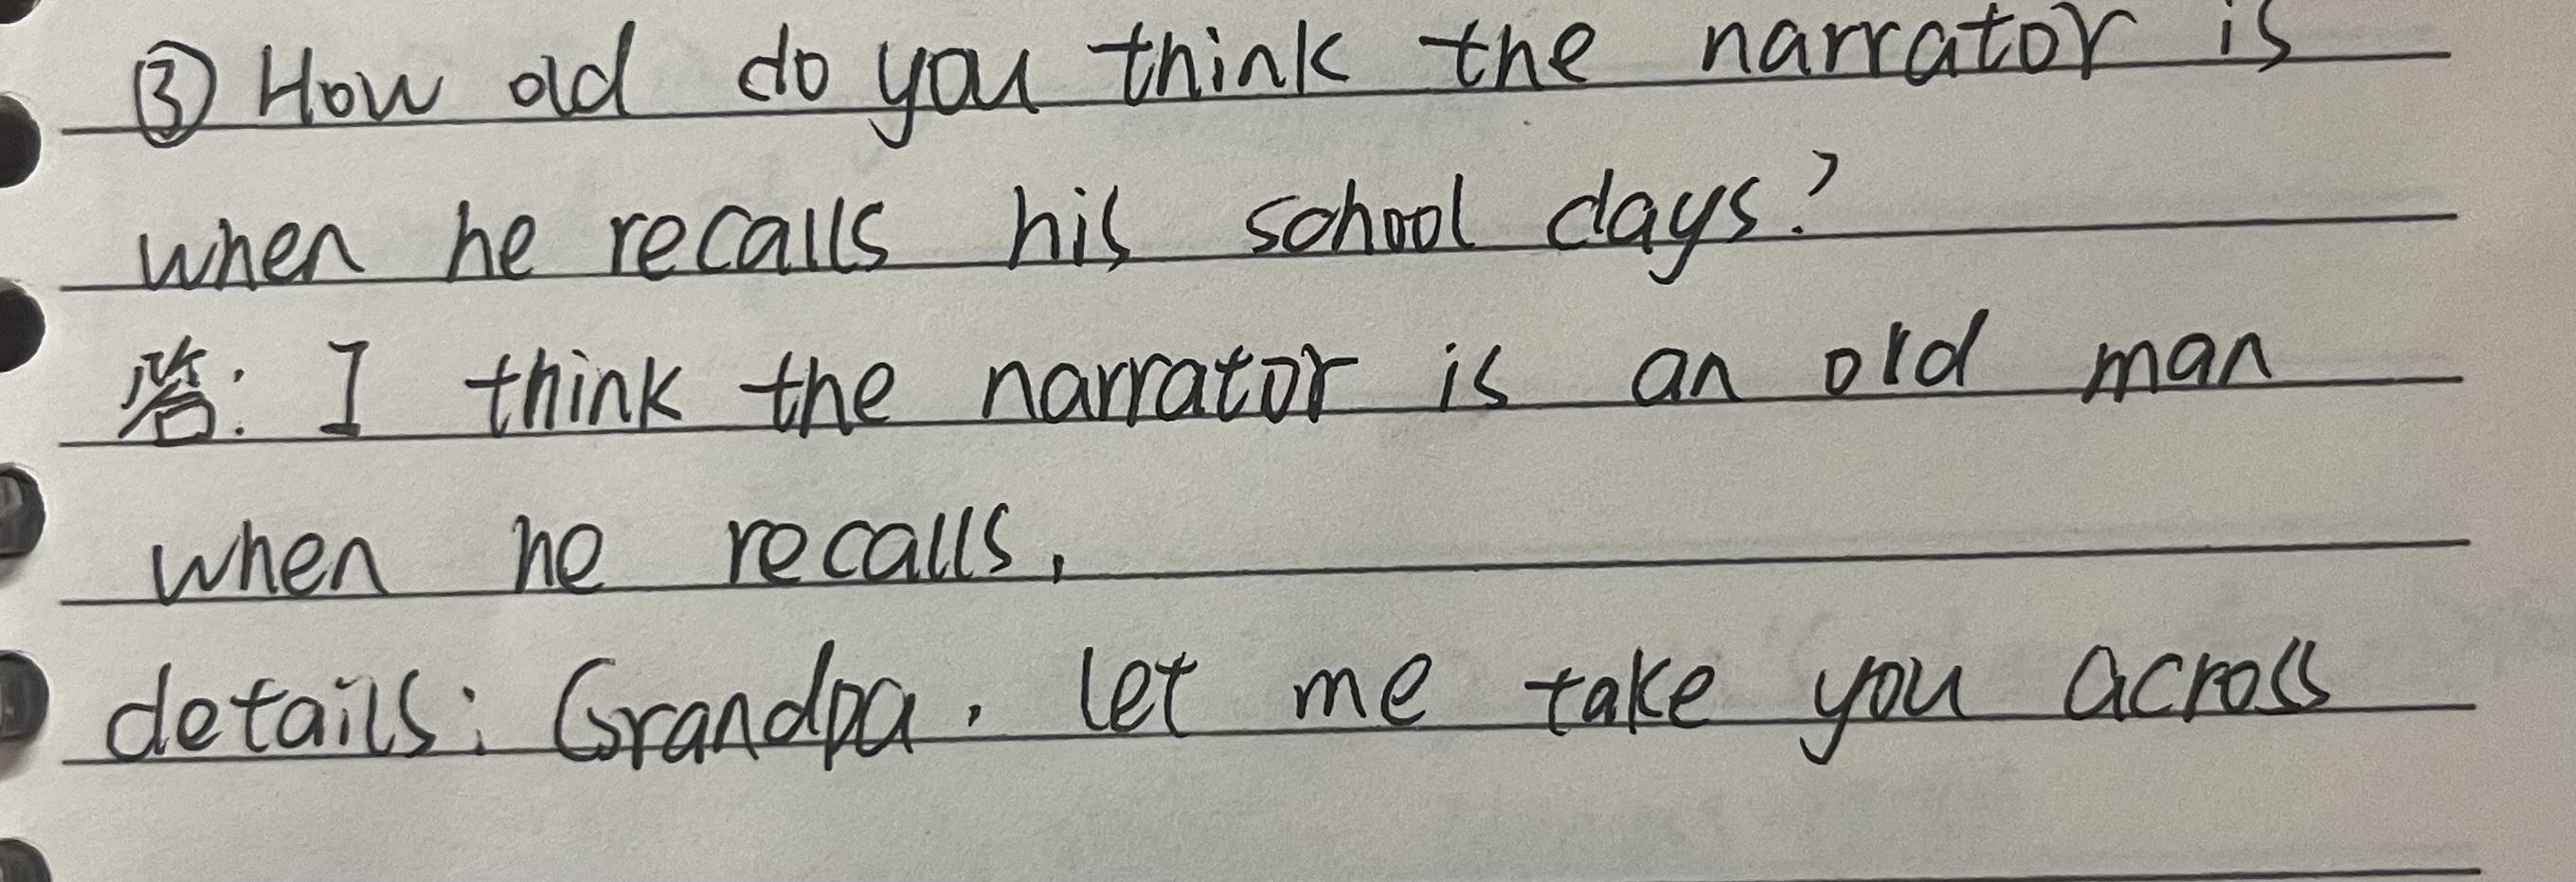 ③ How old do you think the narrator is
when he recalls his school days?
答: I think the narrator is an old man
when he recalls.
details: Grandpa, let me take you across